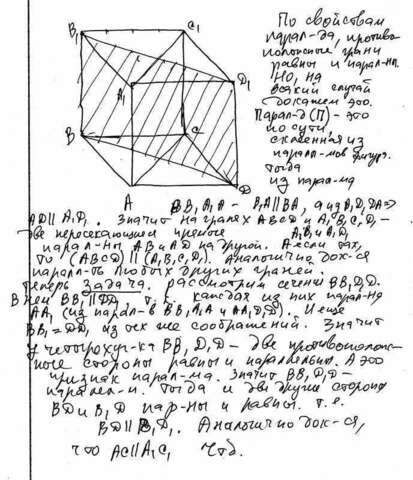 B₁ C₁ A₁ D₁ B C A D
По свойствам
парал-да, противо
положные грани
равны и парал-ны.
Но, на
всякий случай
докажем это.
Парал-д (П) - это
по сути,
склеенная из
парал-мов фигура.
Тогда
из парал-ма
BB₁A₁A - B₁A₁ || BA, а из A₁D₁DA ⇒
AD || A₁D₁. Значит на гранях ABCD и A₁B₁C₁D₁ -
две пересекающиеся прямые A₁B₁ и A₁D₁
парал-ны AB и AD на другой. А если так,
то (ABCD) || (A₁B₁C₁D₁). Аналогично док-ся
парал-ть любых других граней.
Теперь задача. Рассмотрим сечение BB₁D₁D.
В нём BB₁ || DD₁, т.к. каждая из них парал-на
AA₁ (из парал- в BB₁A₁A и AA₁D₁D). И ещё
BB₁ = DD₁ из тех же соображений. Значит
у четырёхуг-ка BB₁D₁D - две противополож-
ные стороны равны и параллельны. А это
признак парал-ма. Значит BB₁D₁D -
парал-м. Тогда и две другие стороны
BD и B₁D пар-ны и равны. т.е.
BD || B₁D₁. Аналогично док-ся,
что AC || A₁C₁ Чтд.